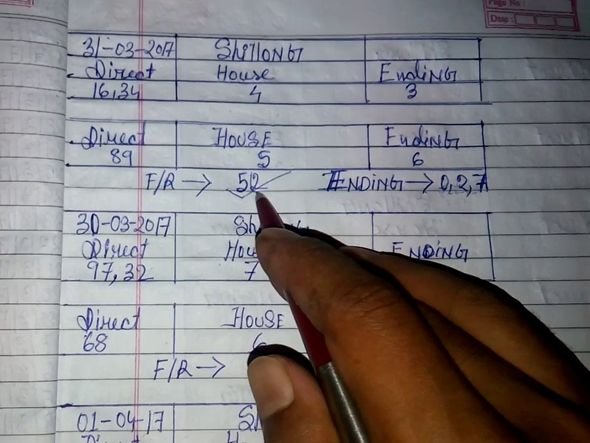 Page No:
Date:
31-03-2017 SHILLONG
Direct House Ending
16,34 4 3
Direct HOUSE Ending
89 5 6
F/R → 52 ENDING → 0,2,7
30-03-2017
Direct ENDING
97,32 7
Direct HOUSE
68 6
F/R →
01-04-17